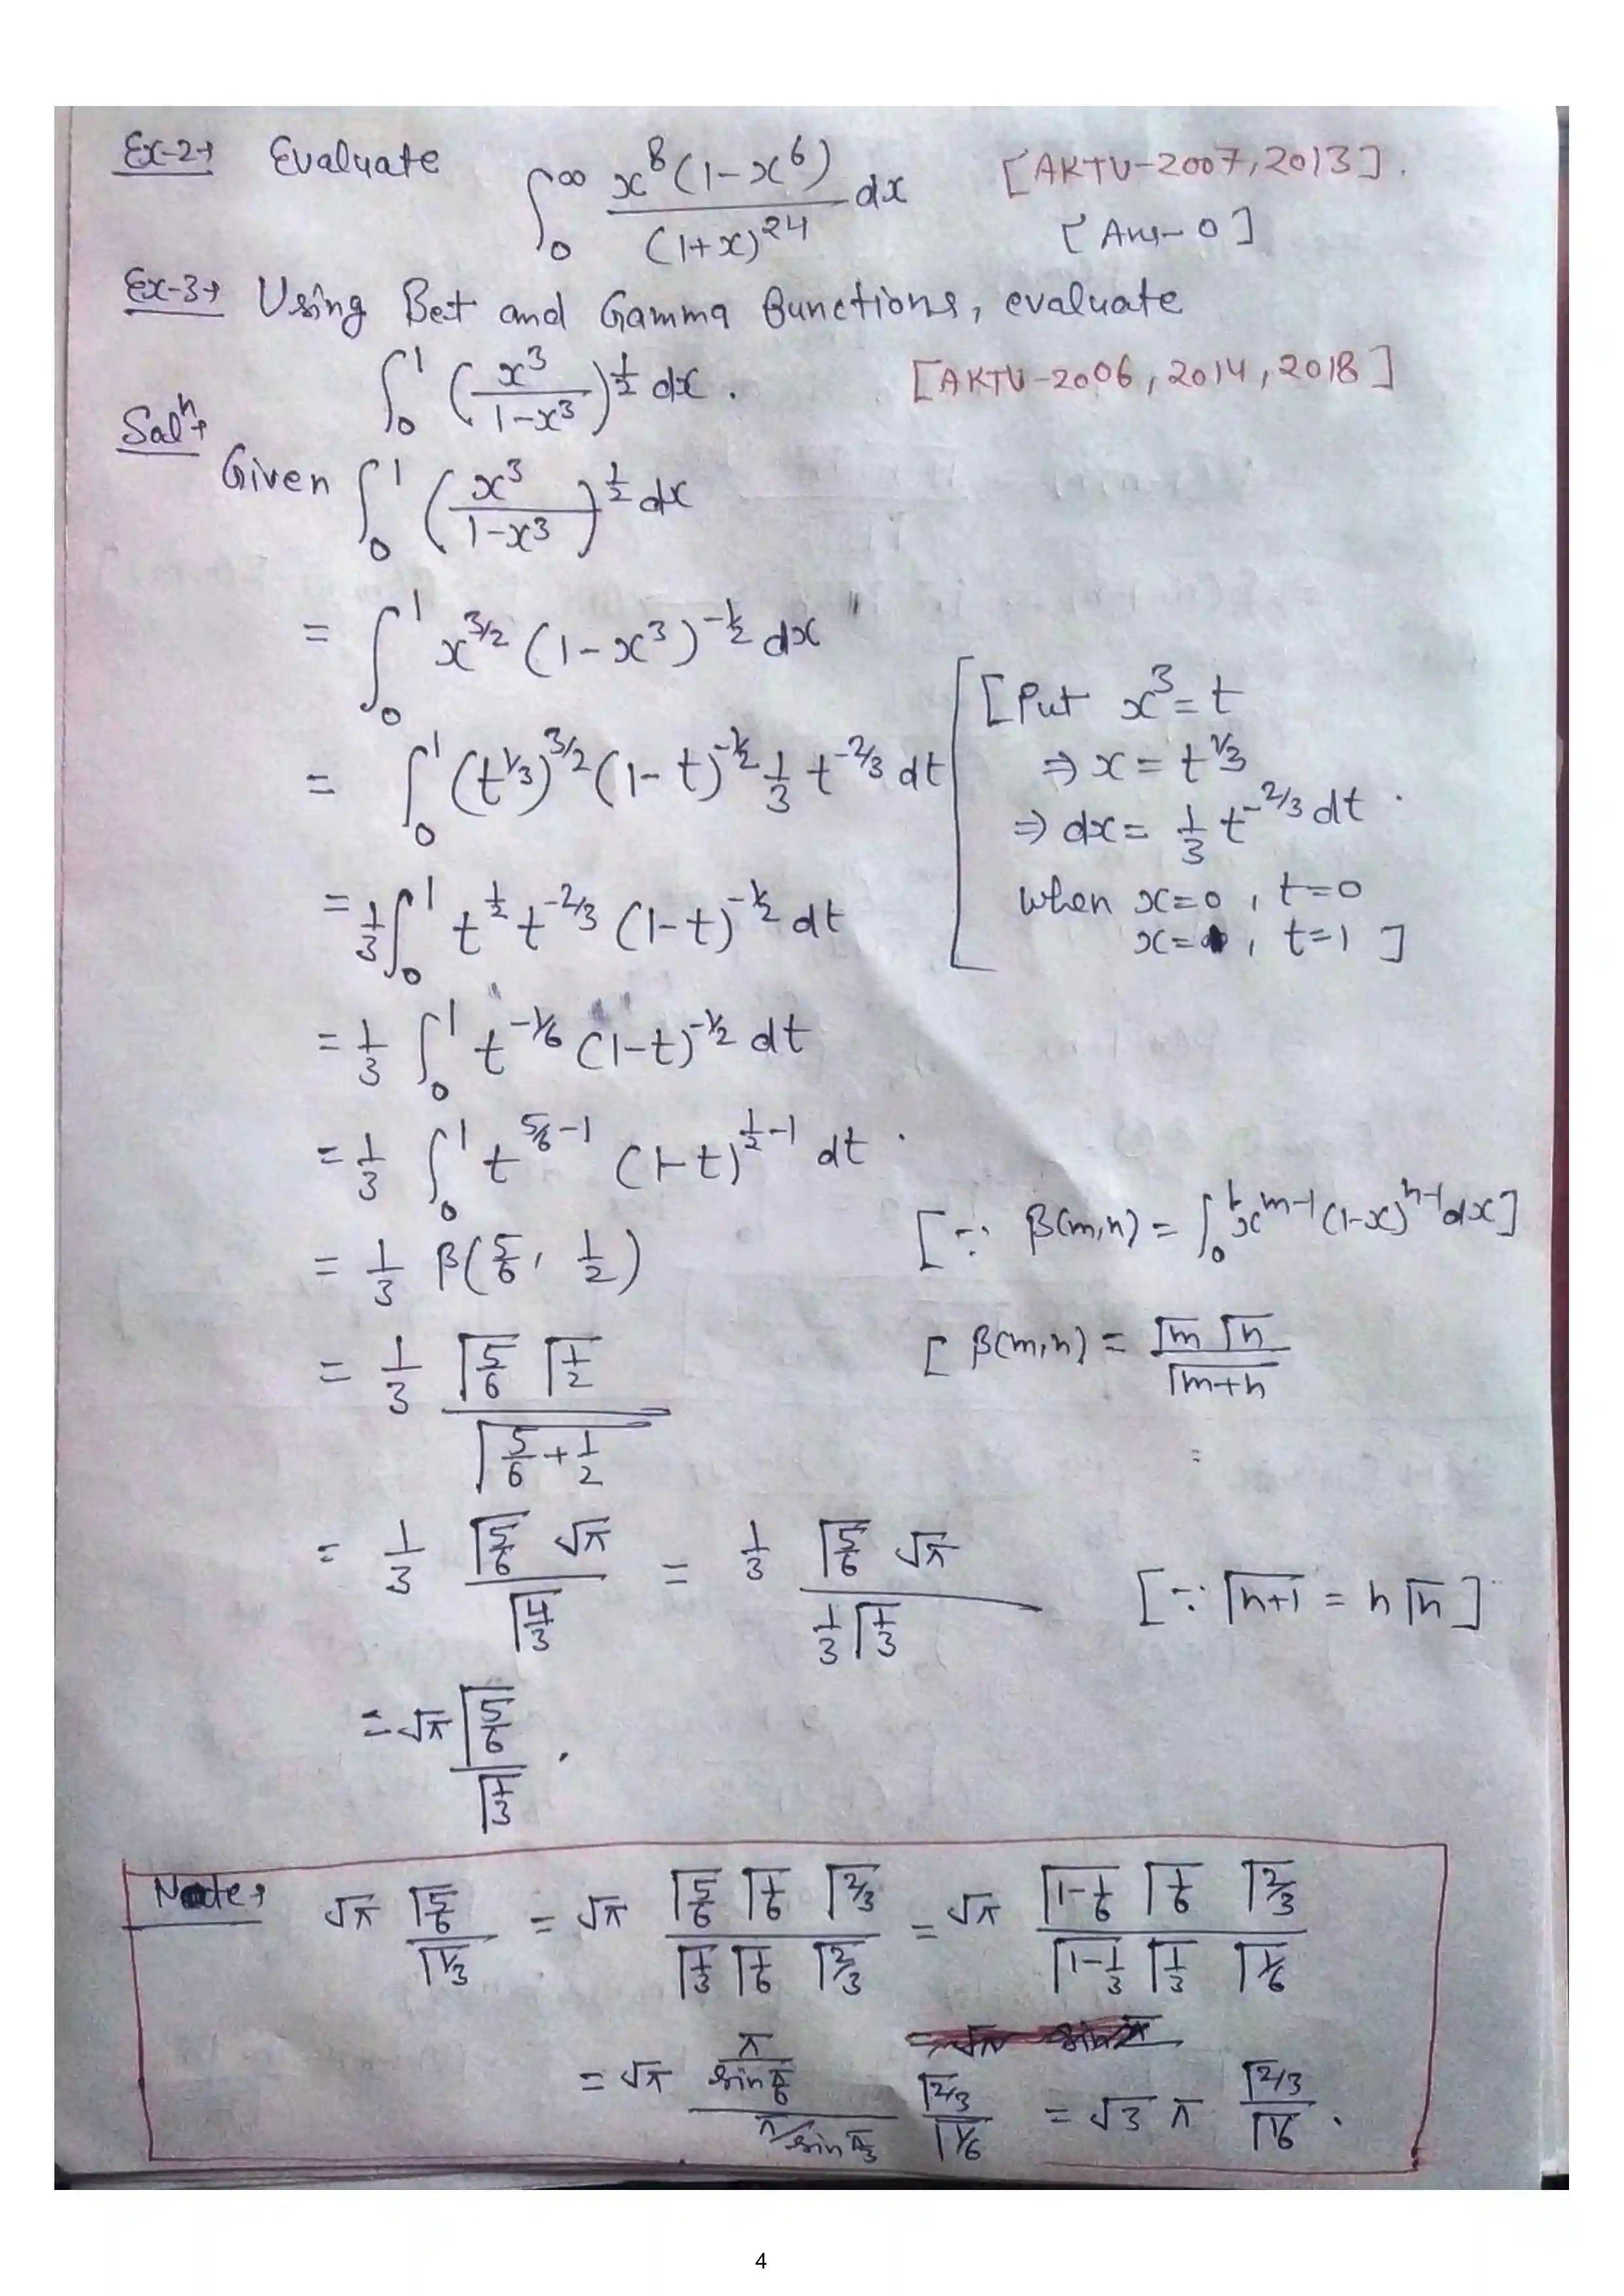 Ex-2→ Evaluate ∫₀^∞ x⁸(1-x⁶)/(1+x)²⁴ dx [AKTU-2007,2013].
[Ans-0]
Ex-3→ Using Bet and Gamma Functions, evaluate
∫₀¹ (x³/(1-x³))^(1/2) dx. [AKTU-2006, 2014, 2018]
Solⁿ→
Given ∫₀¹ (x³/(1-x³))^(1/2) dx
= ∫₀¹ x^(3/2) (1-x³)^(-1/2) dx
= ∫₀¹ (t^(1/3))^(3/2) (1-t)^(-1/2) 1/3 t^(-2/3) dt
[Put x³=t
⇒ x = t^(1/3)
⇒ dx = 1/3 t^(-2/3) dt.
when x=0, t=0
x= , t=1 ]
= 1/3 ∫₀¹ t^(1/2) t^(-2/3) (1-t)^(-1/2) dt
= 1/3 ∫₀¹ t^(-1/6) (1-t)^(-1/2) dt
= 1/3 ∫₀¹ t^(5/6-1) (1-t)^(1/2-1) dt.
= 1/3 β(5/6, 1/2) [∵ β(m,n) = ∫₀¹ x^(m-1) (1-x)^(n-1) dx]
= 1/3 (Γ5/6 Γ1/2)/(Γ5/6+1/2) [β(m,n) = (Γm Γn)/(Γm+n)
= 1/3 (Γ5/6 √π)/(Γ4/3) = 1/3 (Γ5/6 √π)/(1/3 Γ1/3) [∵ Γn+1 = n Γn]
= √π (Γ5/6)/(Γ1/3).
Note→ √π (Γ5/6)/(Γ1/3) = √π (Γ5/6 Γ1/6 Γ2/3)/(Γ1/3 Γ1/6 Γ2/3) = √π (Γ1-1/6 Γ1/6 Γ2/3)/(Γ1-1/3 Γ1/3 Γ1/6)
= √π (π/sin π/6)/(π/sin π/3) (Γ2/3)/(Γ1/6) = √3 π (Γ2/3)/(Γ1/6).
4